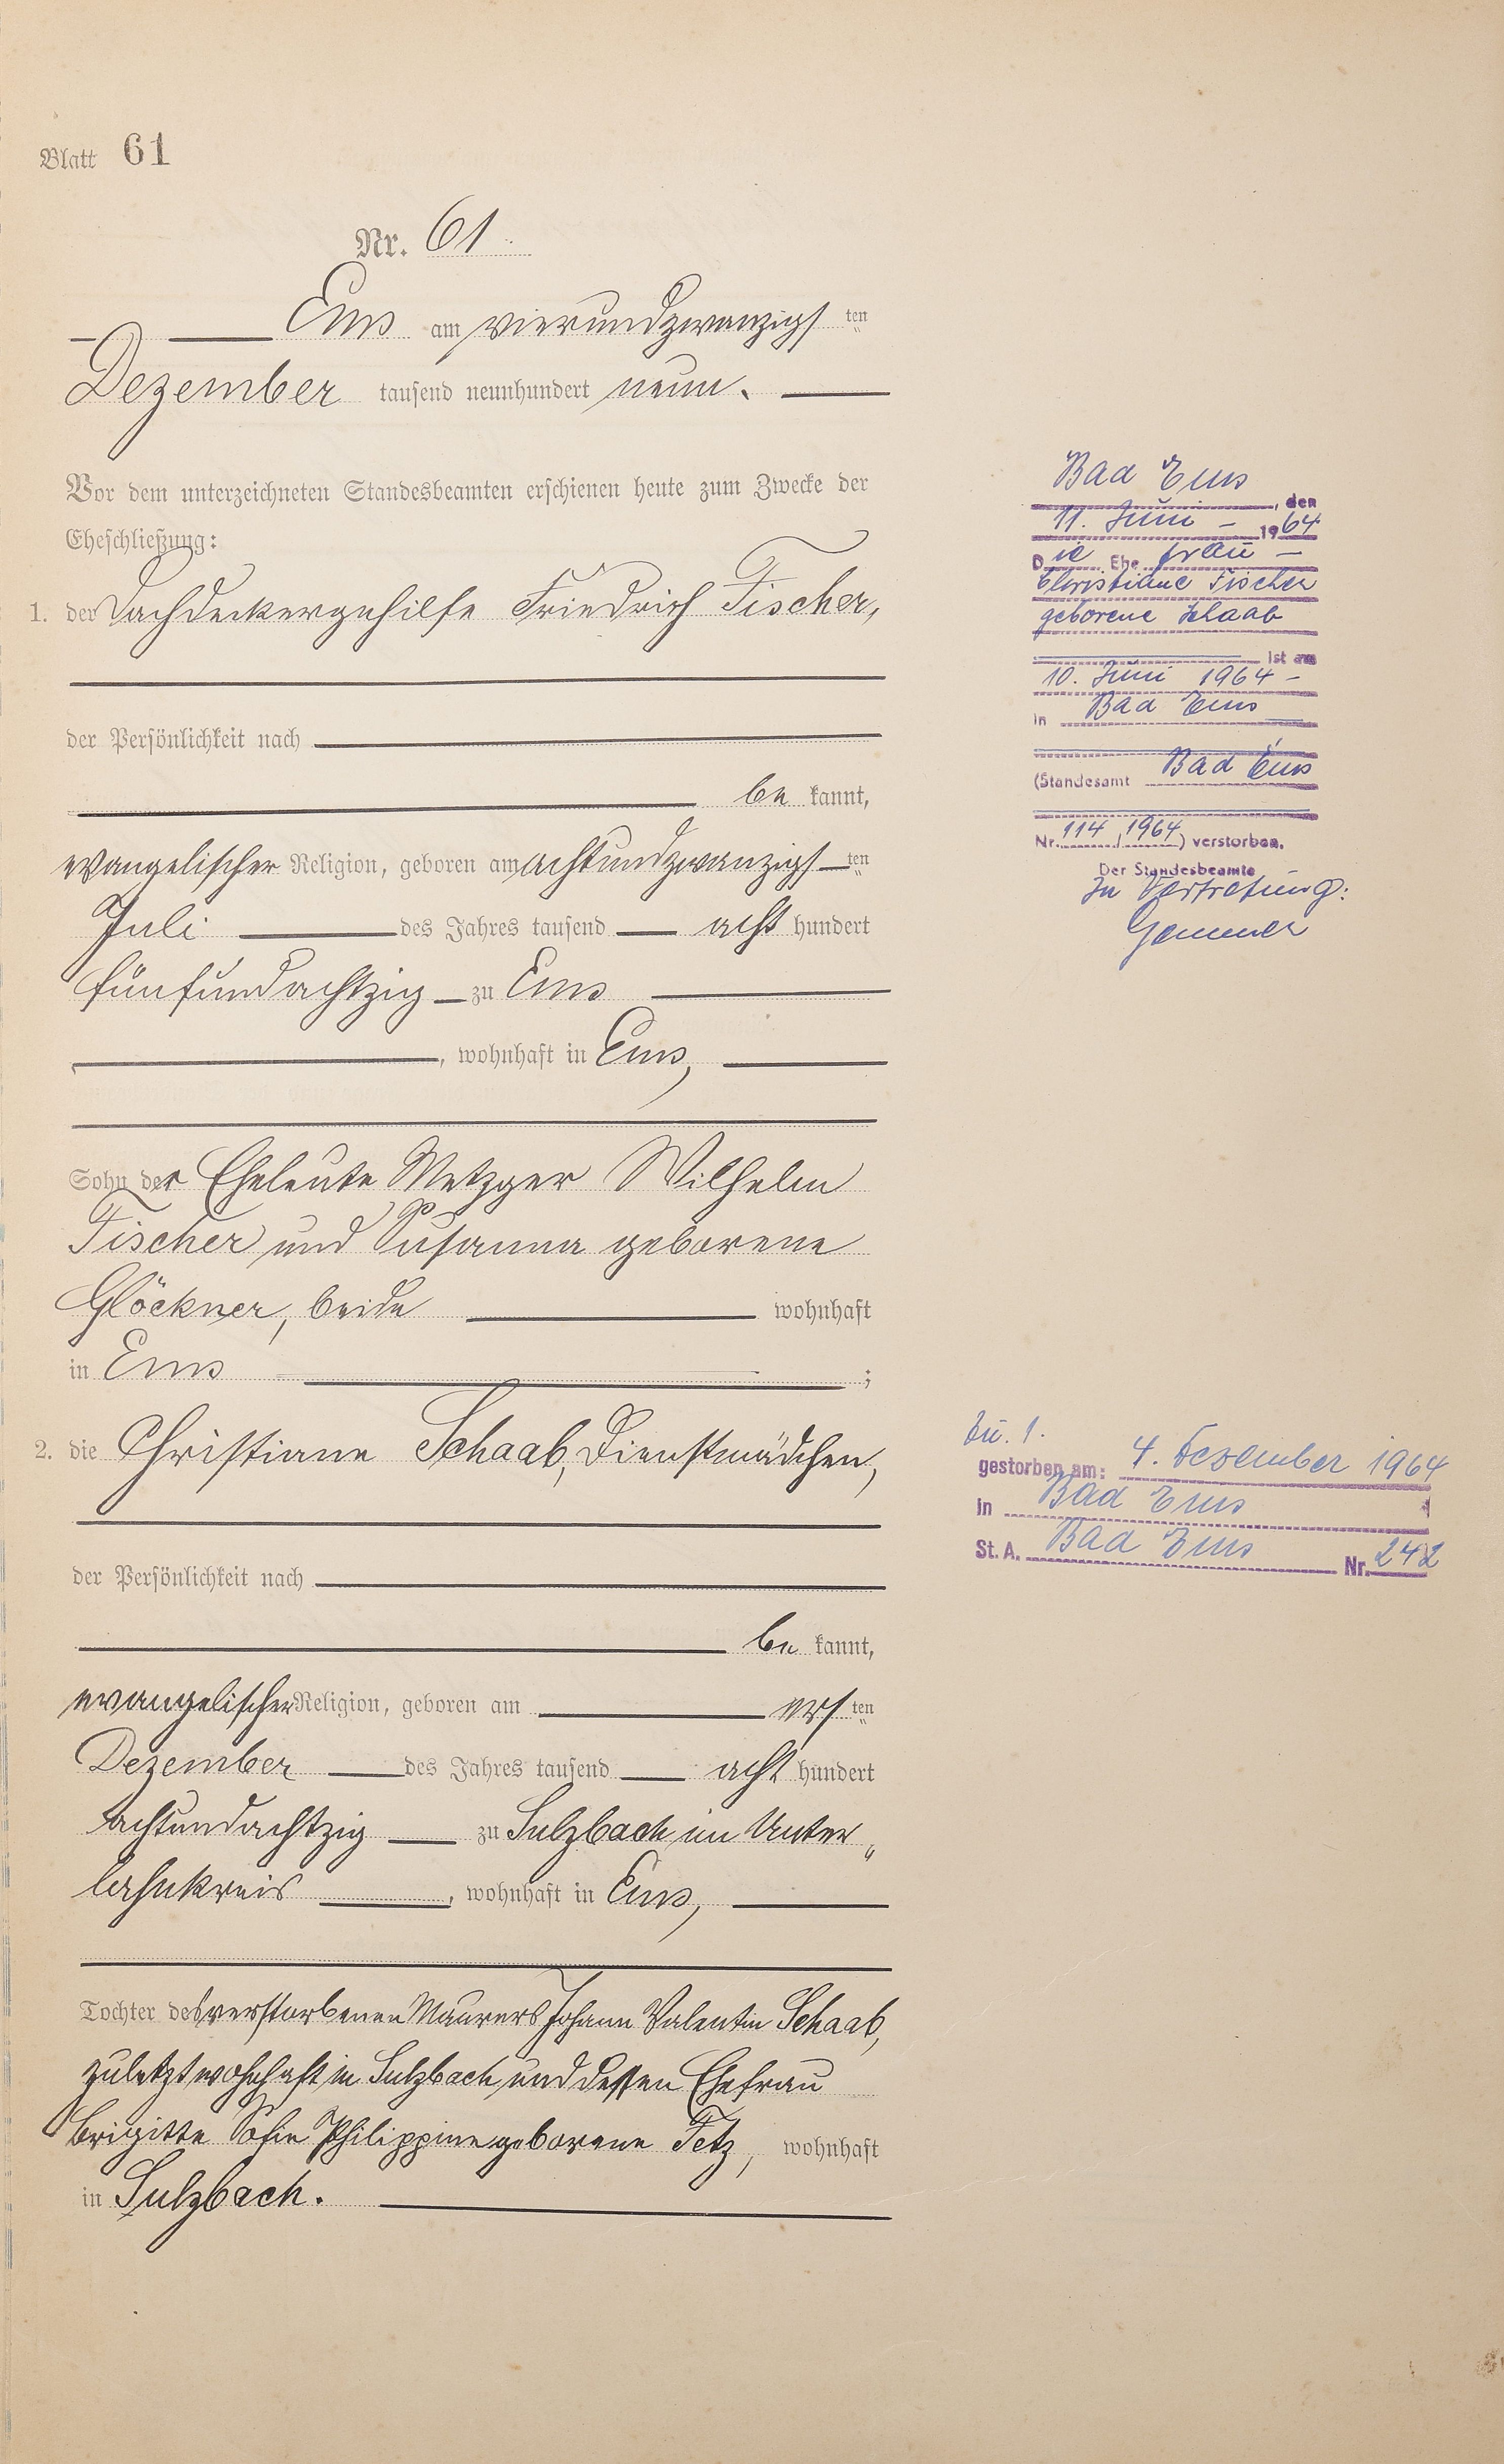 Blatt 61
Nr. 61.
Ems am vierundzwanzigsten
Dezember tausend neunhundert neun.
Vor dem unterzeichneten Standesbeamten erschienen heute zum Zwecke der
Eheschließung:
1. der Dachdeckergehilfe Friedrich Fischer,
der Persönlichkeit nach
be kannt,
evangelischer Religion, geboren am achtundzwanzigsten
Juli des Jahres tausend acht hundert
fünfundachtzig zu Ems
, wohnhaft in Ems,
Sohn der Eheleute Metzger Wilhelm
Fischer und Susanna geborene
Glöckner, beide wohnhaft
in Ems ;
2. die Christiane Schaab, Dienstmädchen,
der Persönlichkeit nach
be kannt,
evangelischer Religion, geboren am ersten
Dezember des Jahres tausend acht hundert
achtundachtzig zu Sulzbach im Unter„
lahnkreis , wohnhaft in Ems,
Tochter des verstorbenen Maurers Johann Valentin Schaab,
zuletzt wohnhaft in Sulzbach und dessen Ehefrau
Brigitte Sofie Philippine geborene Fetz, wohnhaft
in Sulzbach.
Bad Ems , den
11. Juni - 1964
Die Ehefrau -
Christiane Fischer
geborene Schaab
ist am
10. Juni 1964 -
in Bad Ems
(Standesamt Bad Ems
Nr. 114/1964) verstorben.
Der Standesbeamte
In Vertretung:
Zu. 1.
gestorben am: 4. Dezember 1964
in Bad Ems
St. A. Bad Ems Nr. 242